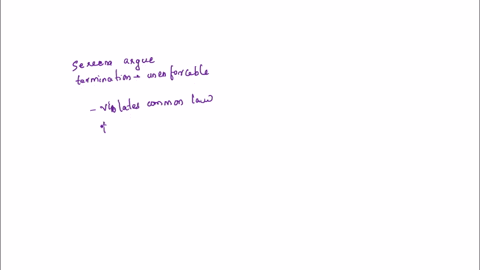 argue
termination → unenforcable
- violates common law